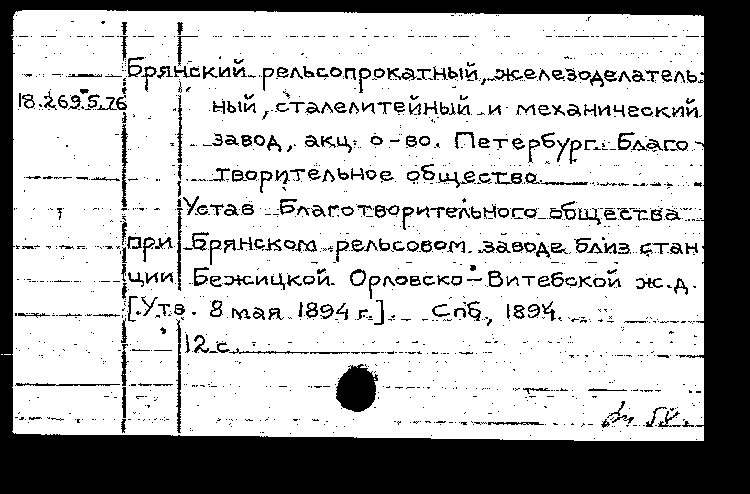 Брянский рельсопрокатный, железоделатель-
18.269.5.76 ный, сталелитейный и механический
завод, акц. о-во. Петербург. Благо-
творительное общество.
Устав Благотворительного общества
при Брянском рельсовом заводе близ стан-
ции Бежицкой Орловско-Витебской ж.д.
[Утв. 8 мая 1894 г.]. Спб, 1894.
12 с.